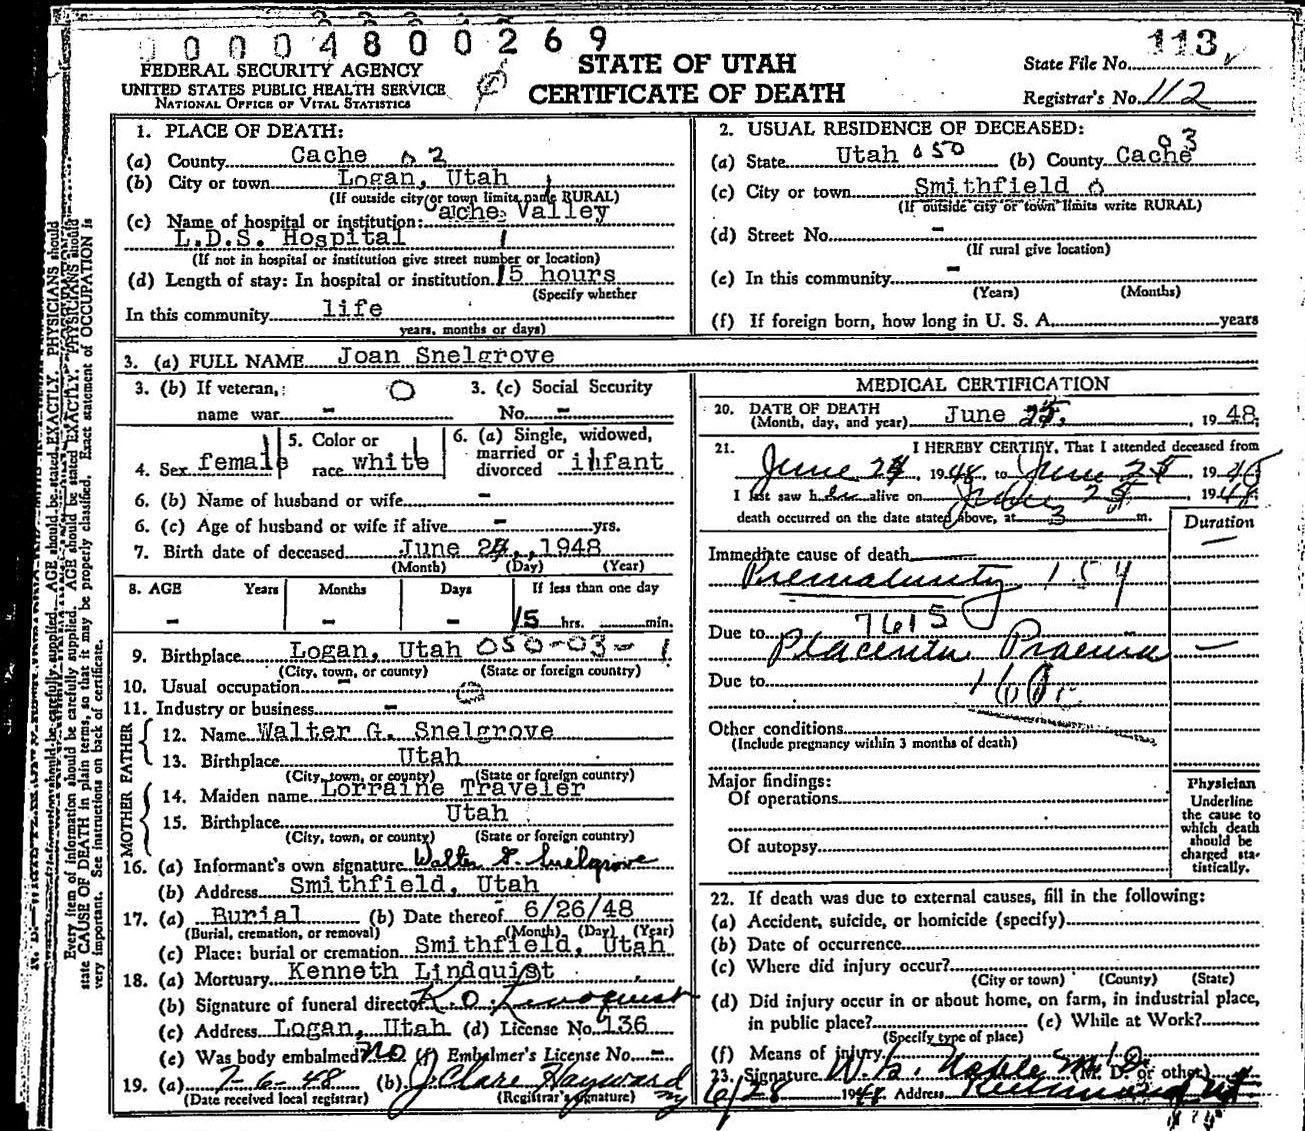 00004800269
FEDERAL SECURITY AGENCY
UNITED STATES PUBLIC HEALTH SERVICE
NATIONAL OFFICE OF VITAL STATISTICS
STATE OF UTAH
CERTIFICATE OF DEATH
State File No. 113
Registrar's No. 112
1. PLACE OF DEATH:
(a) County Cache 02
(b) City or town Logan, Utah
(If outside city or town limits name RURAL)
(c) Name of hospital or institution: Cache Valley
L.D.S. Hospital
(If not in hospital or institution give street number or location)
(d) Length of stay: In hospital or institution 15 hours
(Specify whether
In this community life
years, months or days)
2. USUAL RESIDENCE OF DECEASED:
(a) State Utah 050 (b) County Cache 03
(c) City or town Smithfield 0
(If outside city or town limits write RURAL)
(d) Street No. -
(If rural give location)
(e) In this community -
(Years) (Months)
(f) If foreign born, how long in U. S. A. years
3. (a) FULL NAME Joan Snelgrove
3. (b) If veteran, 0 3. (c) Social Security
name war - No. -
4. Sex female 5. Color or race white 6. (a) Single, widowed, married or divorced infant
6. (b) Name of husband or wife -
6. (c) Age of husband or wife if alive - yrs.
7. Birth date of deceased June , 1948
(Month) (Day) (Year)
8. AGE Years Months Days If less than one day
- - - 15 hrs. min.
9. Birthplace Logan, Utah 050-03-1
(City, town, or county) (State or foreign country)
10. Usual occupation -
11. Industry or business -
FATHER
12. Name Walter G. Snelgrove
13. Birthplace Utah
(City, town, or county) (State or foreign country)
MOTHER
14. Maiden name Lorraine Traveler
15. Birthplace Utah
(City, town, or county) (State or foreign country)
16. (a) Informant's own signature Walter G. Snelgrove
(b) Address Smithfield, Utah
17. (a) Burial (b) Date thereof 6/26/48
(Burial, cremation, or removal) (Month) (Day) (Year)
(c) Place: burial or cremation Smithfield, Utah
18. (a) Mortuary Kenneth Lindquist
(b) Signature of funeral director K. O. Lindquist
(c) Address Logan, Utah (d) License No. 136
(e) Was body embalmed? no (f) Embalmer's License No. -
19. (a) 7-6-48 (b) J. Clare Hayward
(Date received local registrar) (Registrar's signature)
MEDICAL CERTIFICATION
20. DATE OF DEATH
(Month, day, and year) June 25, 1948
21. I HEREBY CERTIFY, That I attended deceased from
June 24, 1948, to June 25, 19
I last saw her alive on 25, 1948
death occurred on the date stated above, at 3 m.
Duration
Immediate cause of death
Prematurity 154
7615
Due to Placenta Praevia -
Due to 160c
Other conditions
(Include pregnancy within 3 months of death)
Major findings:
Of operations
Of autopsy
Physician
Underline
the cause to
which death
should be
charged sta-
tistically.
22. If death was due to external causes, fill in the following:
(a) Accident, suicide, or homicide (specify)
(b) Date of occurrence
(c) Where did injury occur?
(City or town) (County) (State)
(d) Did injury occur in or about home, on farm, in industrial place,
in public place? (e) While at Work?
(Specify type of place)
(f) Means of injury
23. Signature W. G. Noble M.D. (M. D. or other)
6/28 1948 Address Richmond Ut
Every item of information should be carefully supplied. AGE should be stated EXACTLY. PHYSICIANS should
state CAUSE OF DEATH in plain terms, so that it may be properly classified. Exact statement of OCCUPATION is
very important. See instructions on back of certificate.